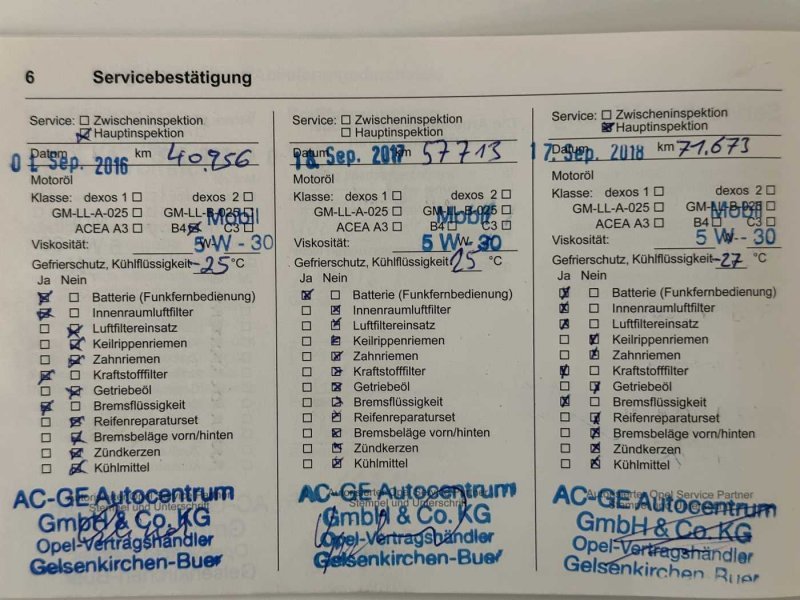 6 Servicebestätigung
Service: Zwischeninspektion
Hauptinspektion
Datum km 40.956
Sep. 2016
Motoröl
Klasse: dexos 1 dexos 2
GM-LL-A-025 GM-LL-B-025
Mobil
ACEA A3 B4 C3
Viskosität: 5 W - 30
Gefrierschutz, Kühlflüssigkeit -25 °C
Ja Nein
Batterie (Funkfernbedienung)
Innenraumluftfilter
Luftfiltereinsatz
Keilrippenriemen
Zahnriemen
Kraftstofffilter
Getriebeöl
Bremsflüssigkeit
Reifenreparaturset
Bremsbeläge vorn/hinten
Zündkerzen
Kühlmittel
Stempel und Unterschrift
AC-GE Autocentrum
GmbH & Co. KG
Opel-Vertragshändler
Gelsenkirchen-Buer
Service: Zwischeninspektion
Hauptinspektion
Datum km 57713
Sep. 2017
Motoröl
Klasse: dexos 1 dexos 2
GM-LL-A-025 GM-LL-B-025
Mobil
ACEA A3 B4 C3
Viskosität: 5 W - 30
Gefrierschutz, Kühlflüssigkeit 25 °C
Ja Nein
Batterie (Funkfernbedienung)
Innenraumluftfilter
Luftfiltereinsatz
Keilrippenriemen
Zahnriemen
Kraftstofffilter
Getriebeöl
Bremsflüssigkeit
Reifenreparaturset
Bremsbeläge vorn/hinten
Zündkerzen
Kühlmittel
Autorisierter Opel Service Partner
Stempel und Unterschrift
AC-GE Autocentrum
GmbH & Co. KG
Opel-Vertragshändler
Gelsenkirchen-Buer
Service: Zwischeninspektion
Hauptinspektion
Datum km 71.673
17. Sep. 2018
Motoröl
Klasse: dexos 1 dexos 2
GM-LL-A-025 GM-LL-B-025
Mobil
ACEA A3 B4 C3
Viskosität: 5 W - 30
Gefrierschutz, Kühlflüssigkeit -27 °C
Ja Nein
Batterie (Funkfernbedienung)
Innenraumluftfilter
Luftfiltereinsatz
Keilrippenriemen
Zahnriemen
Kraftstofffilter
Getriebeöl
Bremsflüssigkeit
Reifenreparaturset
Bremsbeläge vorn/hinten
Zündkerzen
Kühlmittel
Autorisierter Opel Service Partner
Stempel und Unterschrift
AC-GE Autocentrum
GmbH & Co. KG
Opel-Vertragshändler
Gelsenkirchen-Buer